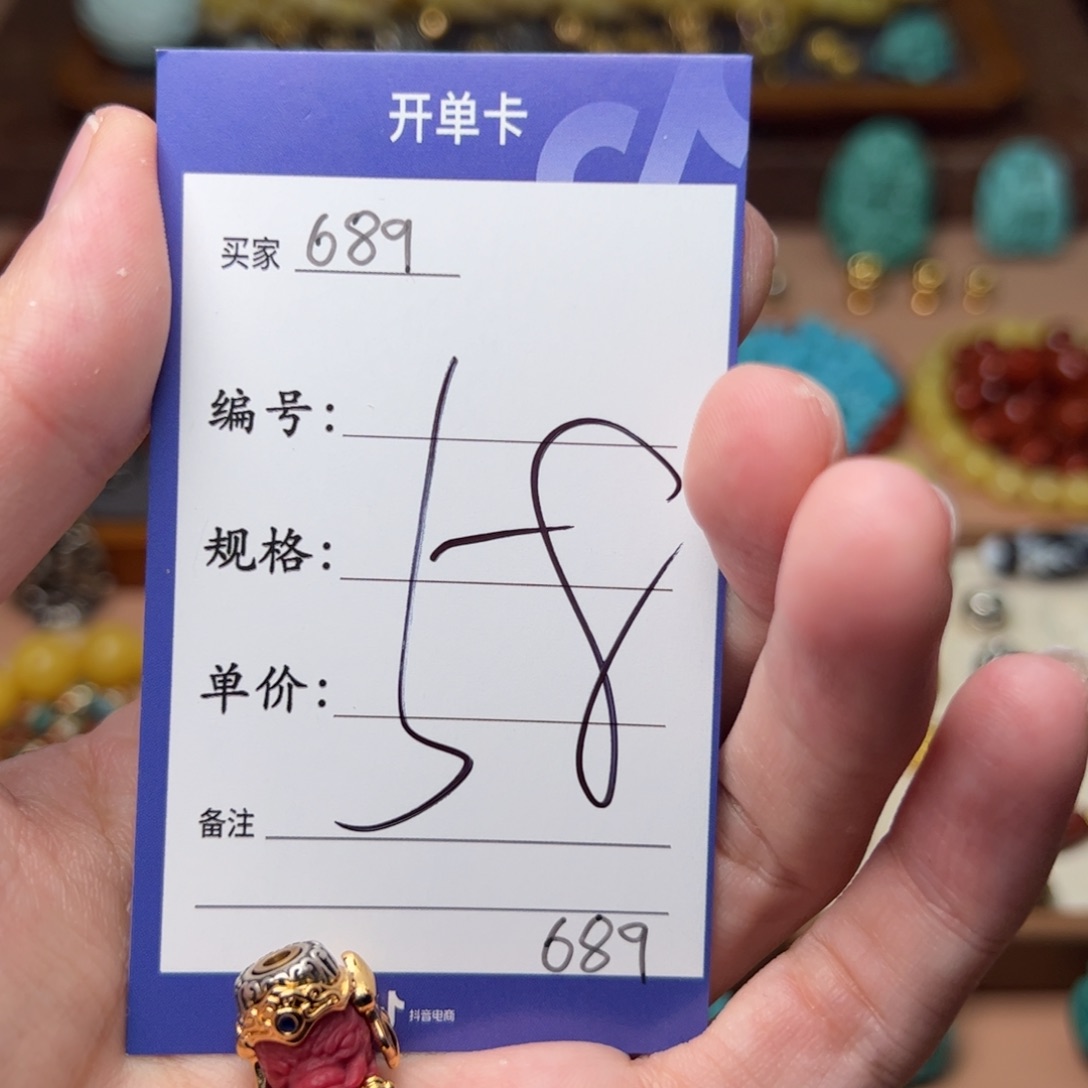 开单卡
买家 689
编号：
规格：
单价：
58
备注
689
抖音电商